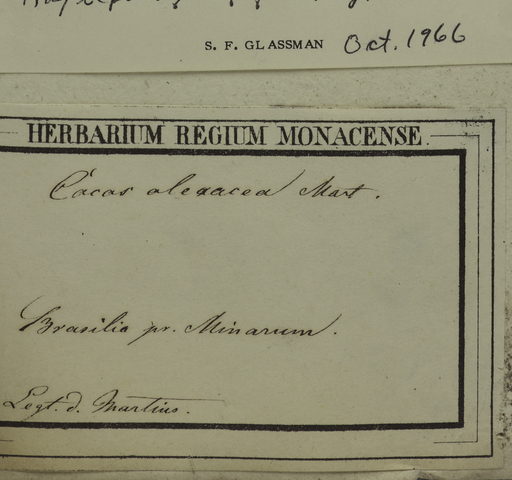 S. F. GLASSMAN Oct. 1966
HERBARIUM REGIUM MONACENSE
Cocos oleracea Mart.
Brasilia pr. Minarum.
Legt. d. Martius.